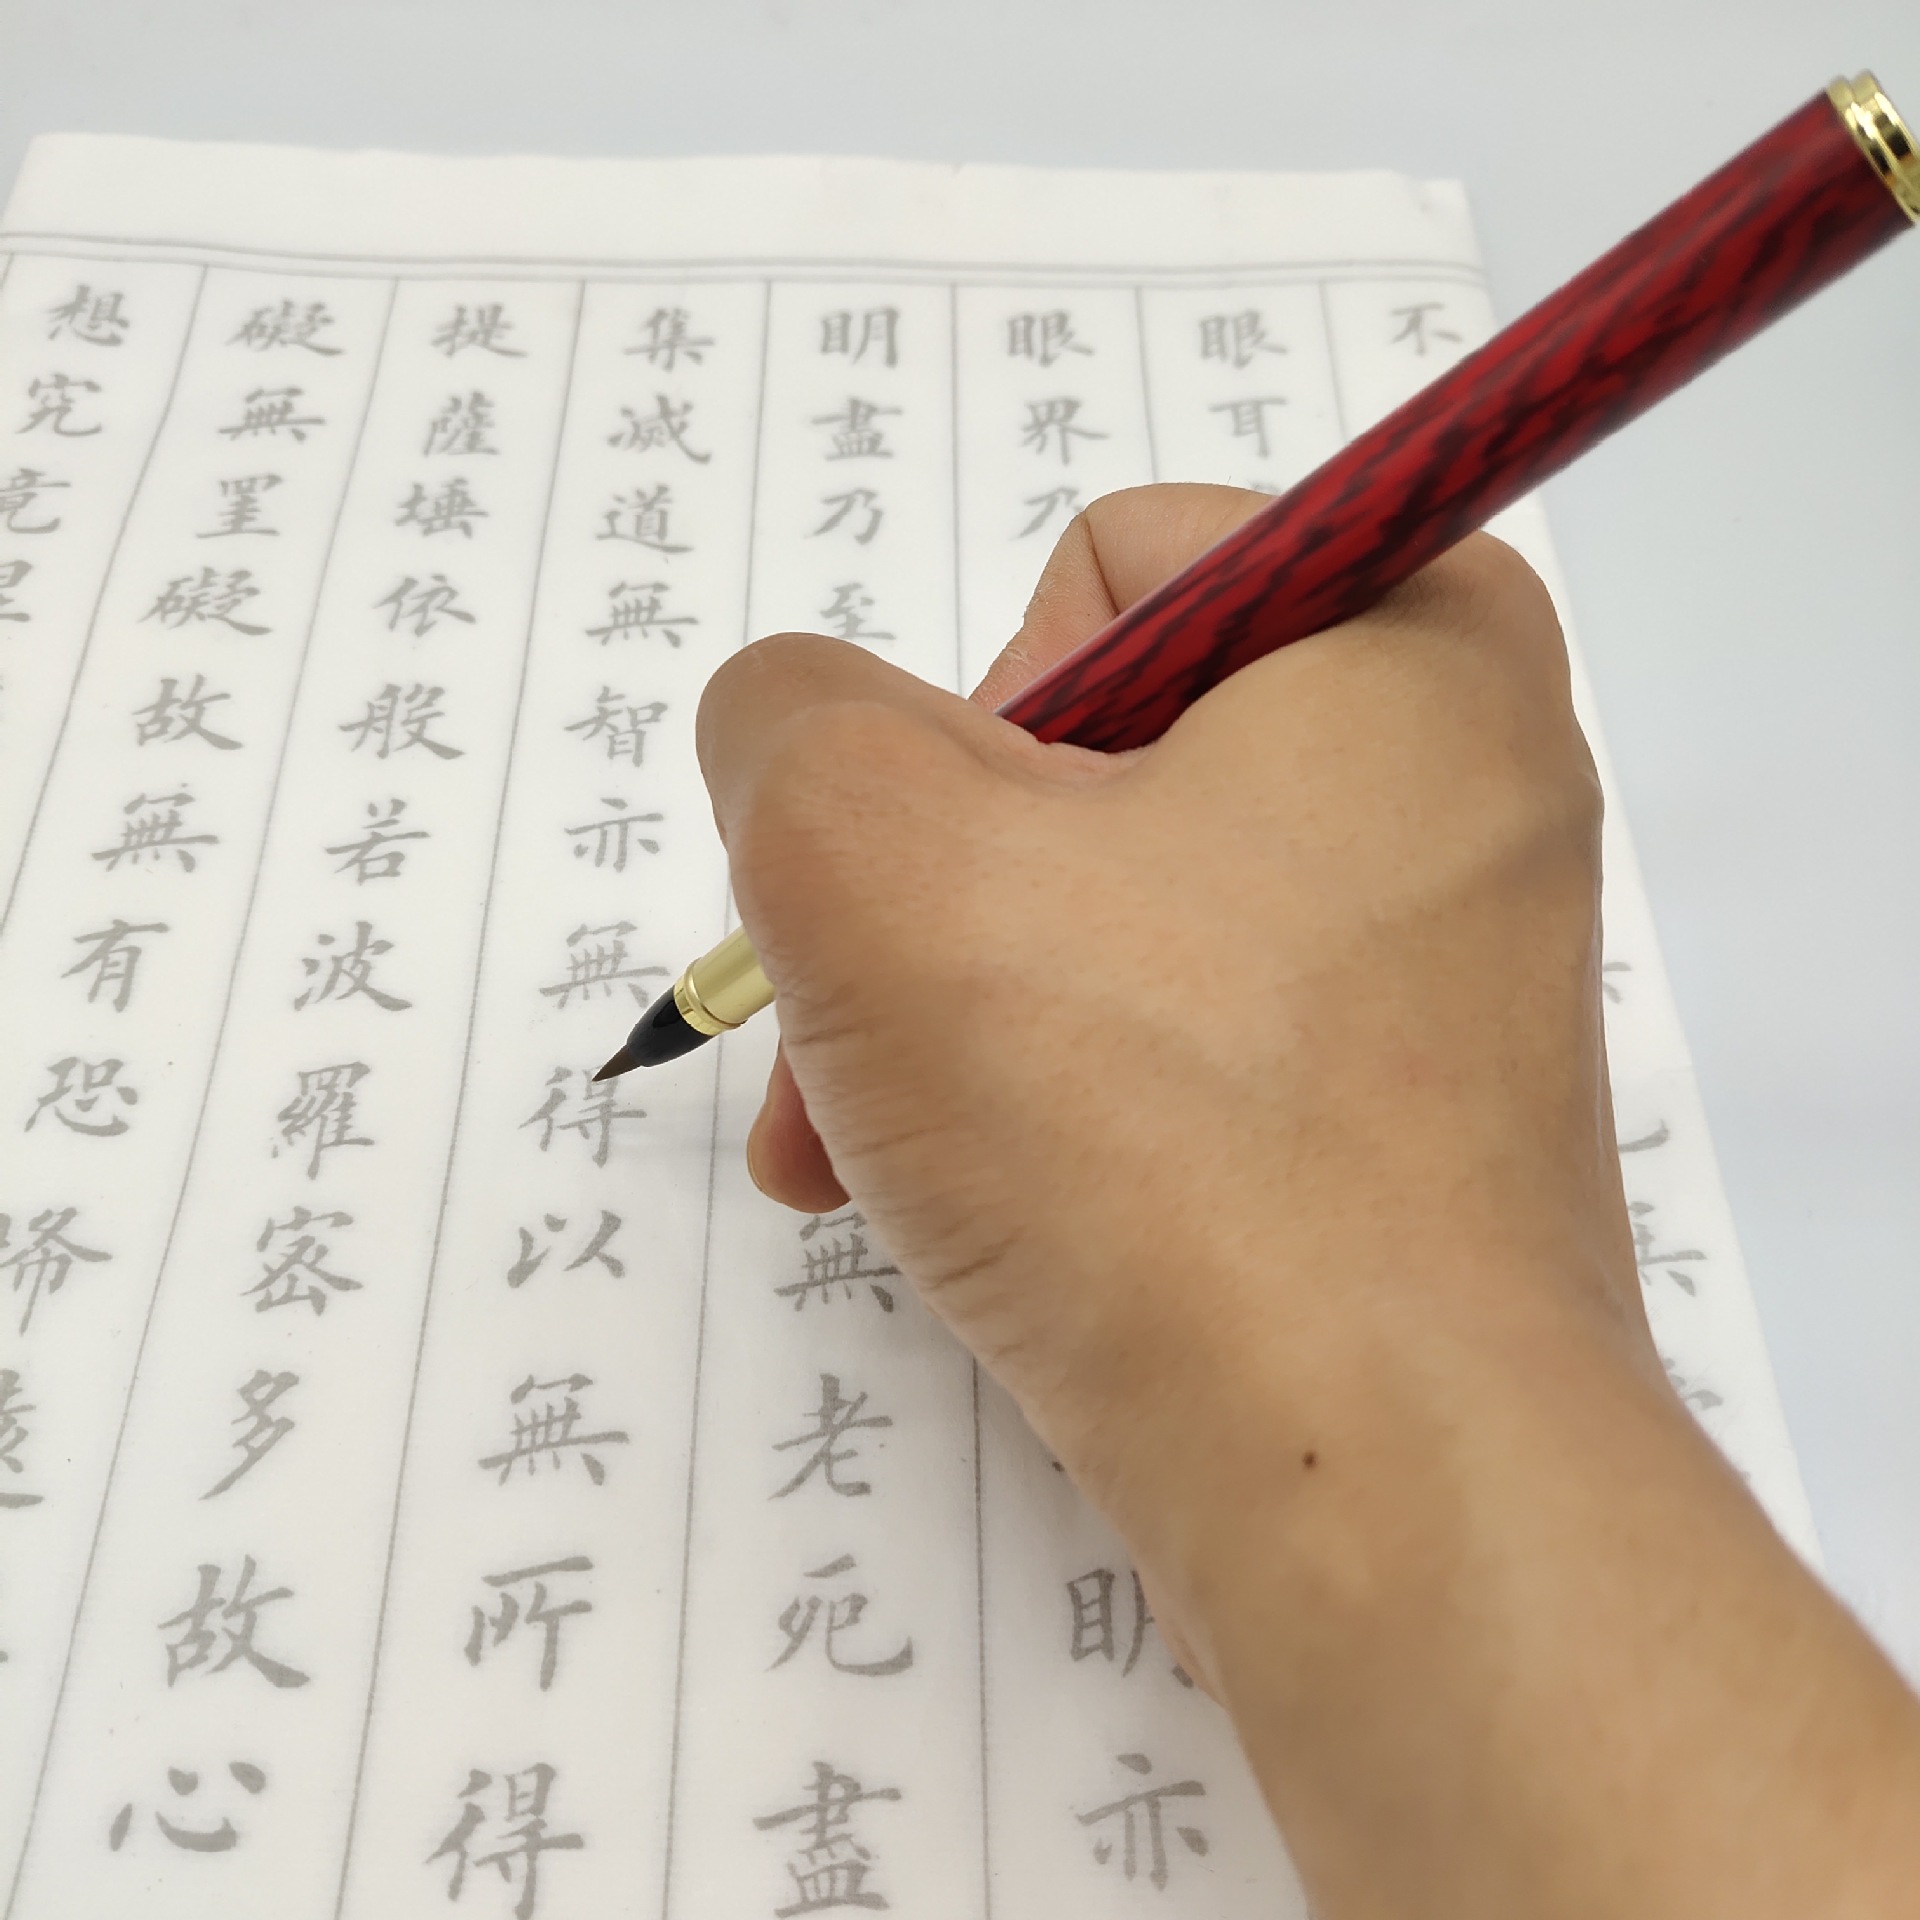 不
眼耳
眼界乃
明盡乃至無老死盡
集滅道無智亦無得以無所得
提薩埵依般若波羅蜜多故心
礙無罣礙故無有恐
想究竟涅
明亦